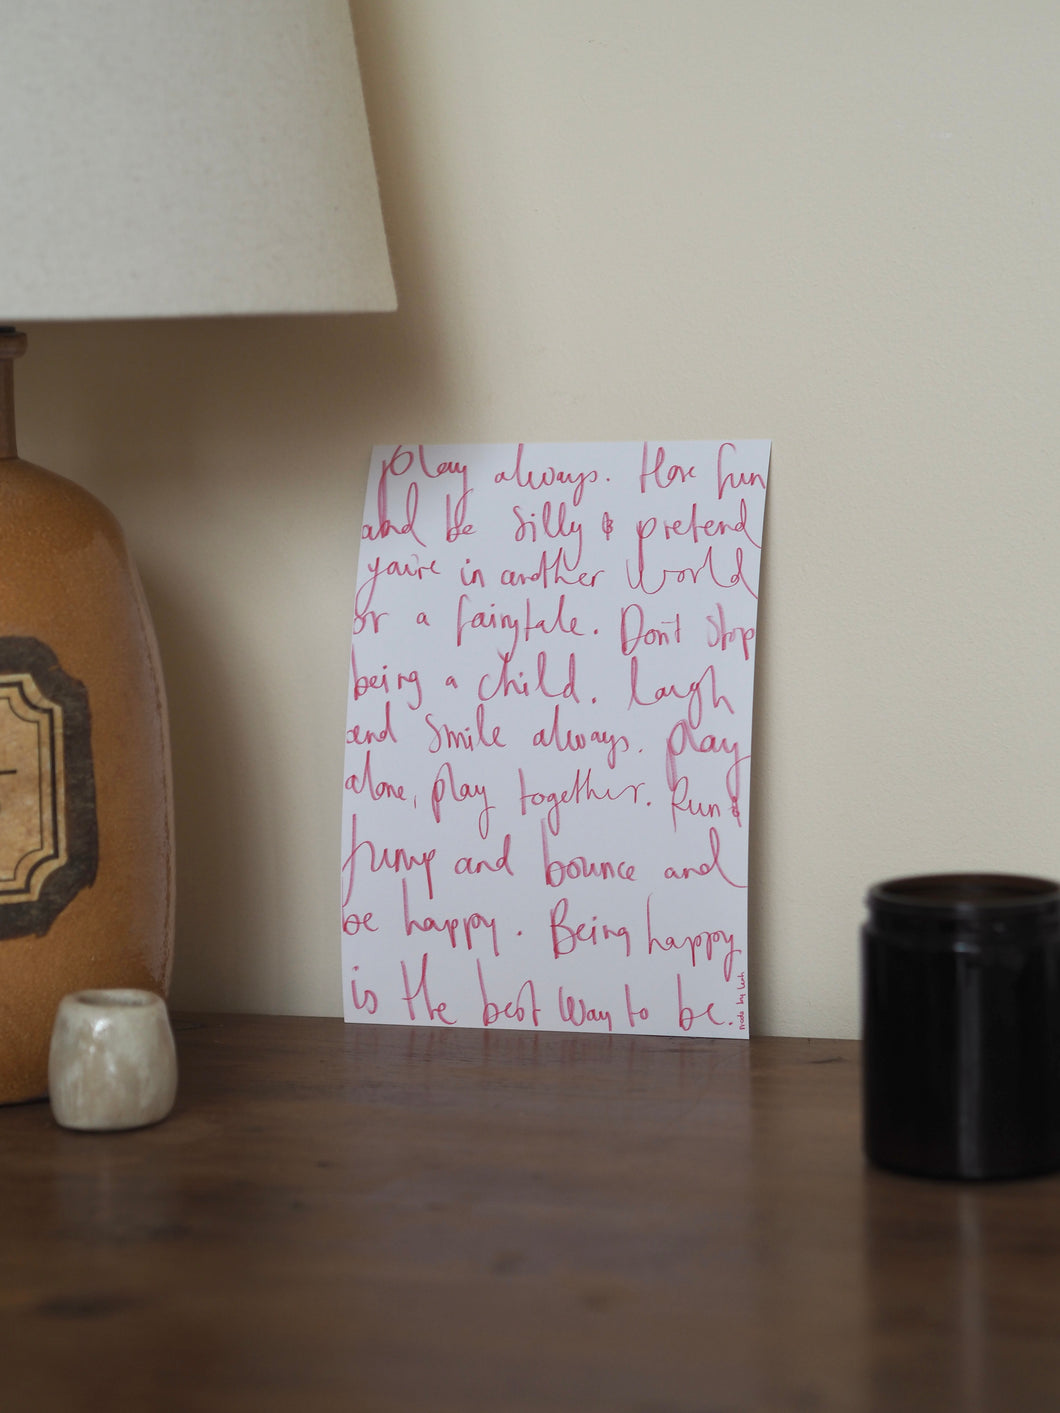 play always. Have fun
and be silly & pretend
you're in another world
or a fairytale. Don't stop
being a child. laugh
and smile always. play
alone, play together. Run &
jump and bounce and
be happy. Being happy
is the best way to be.
made by Leah